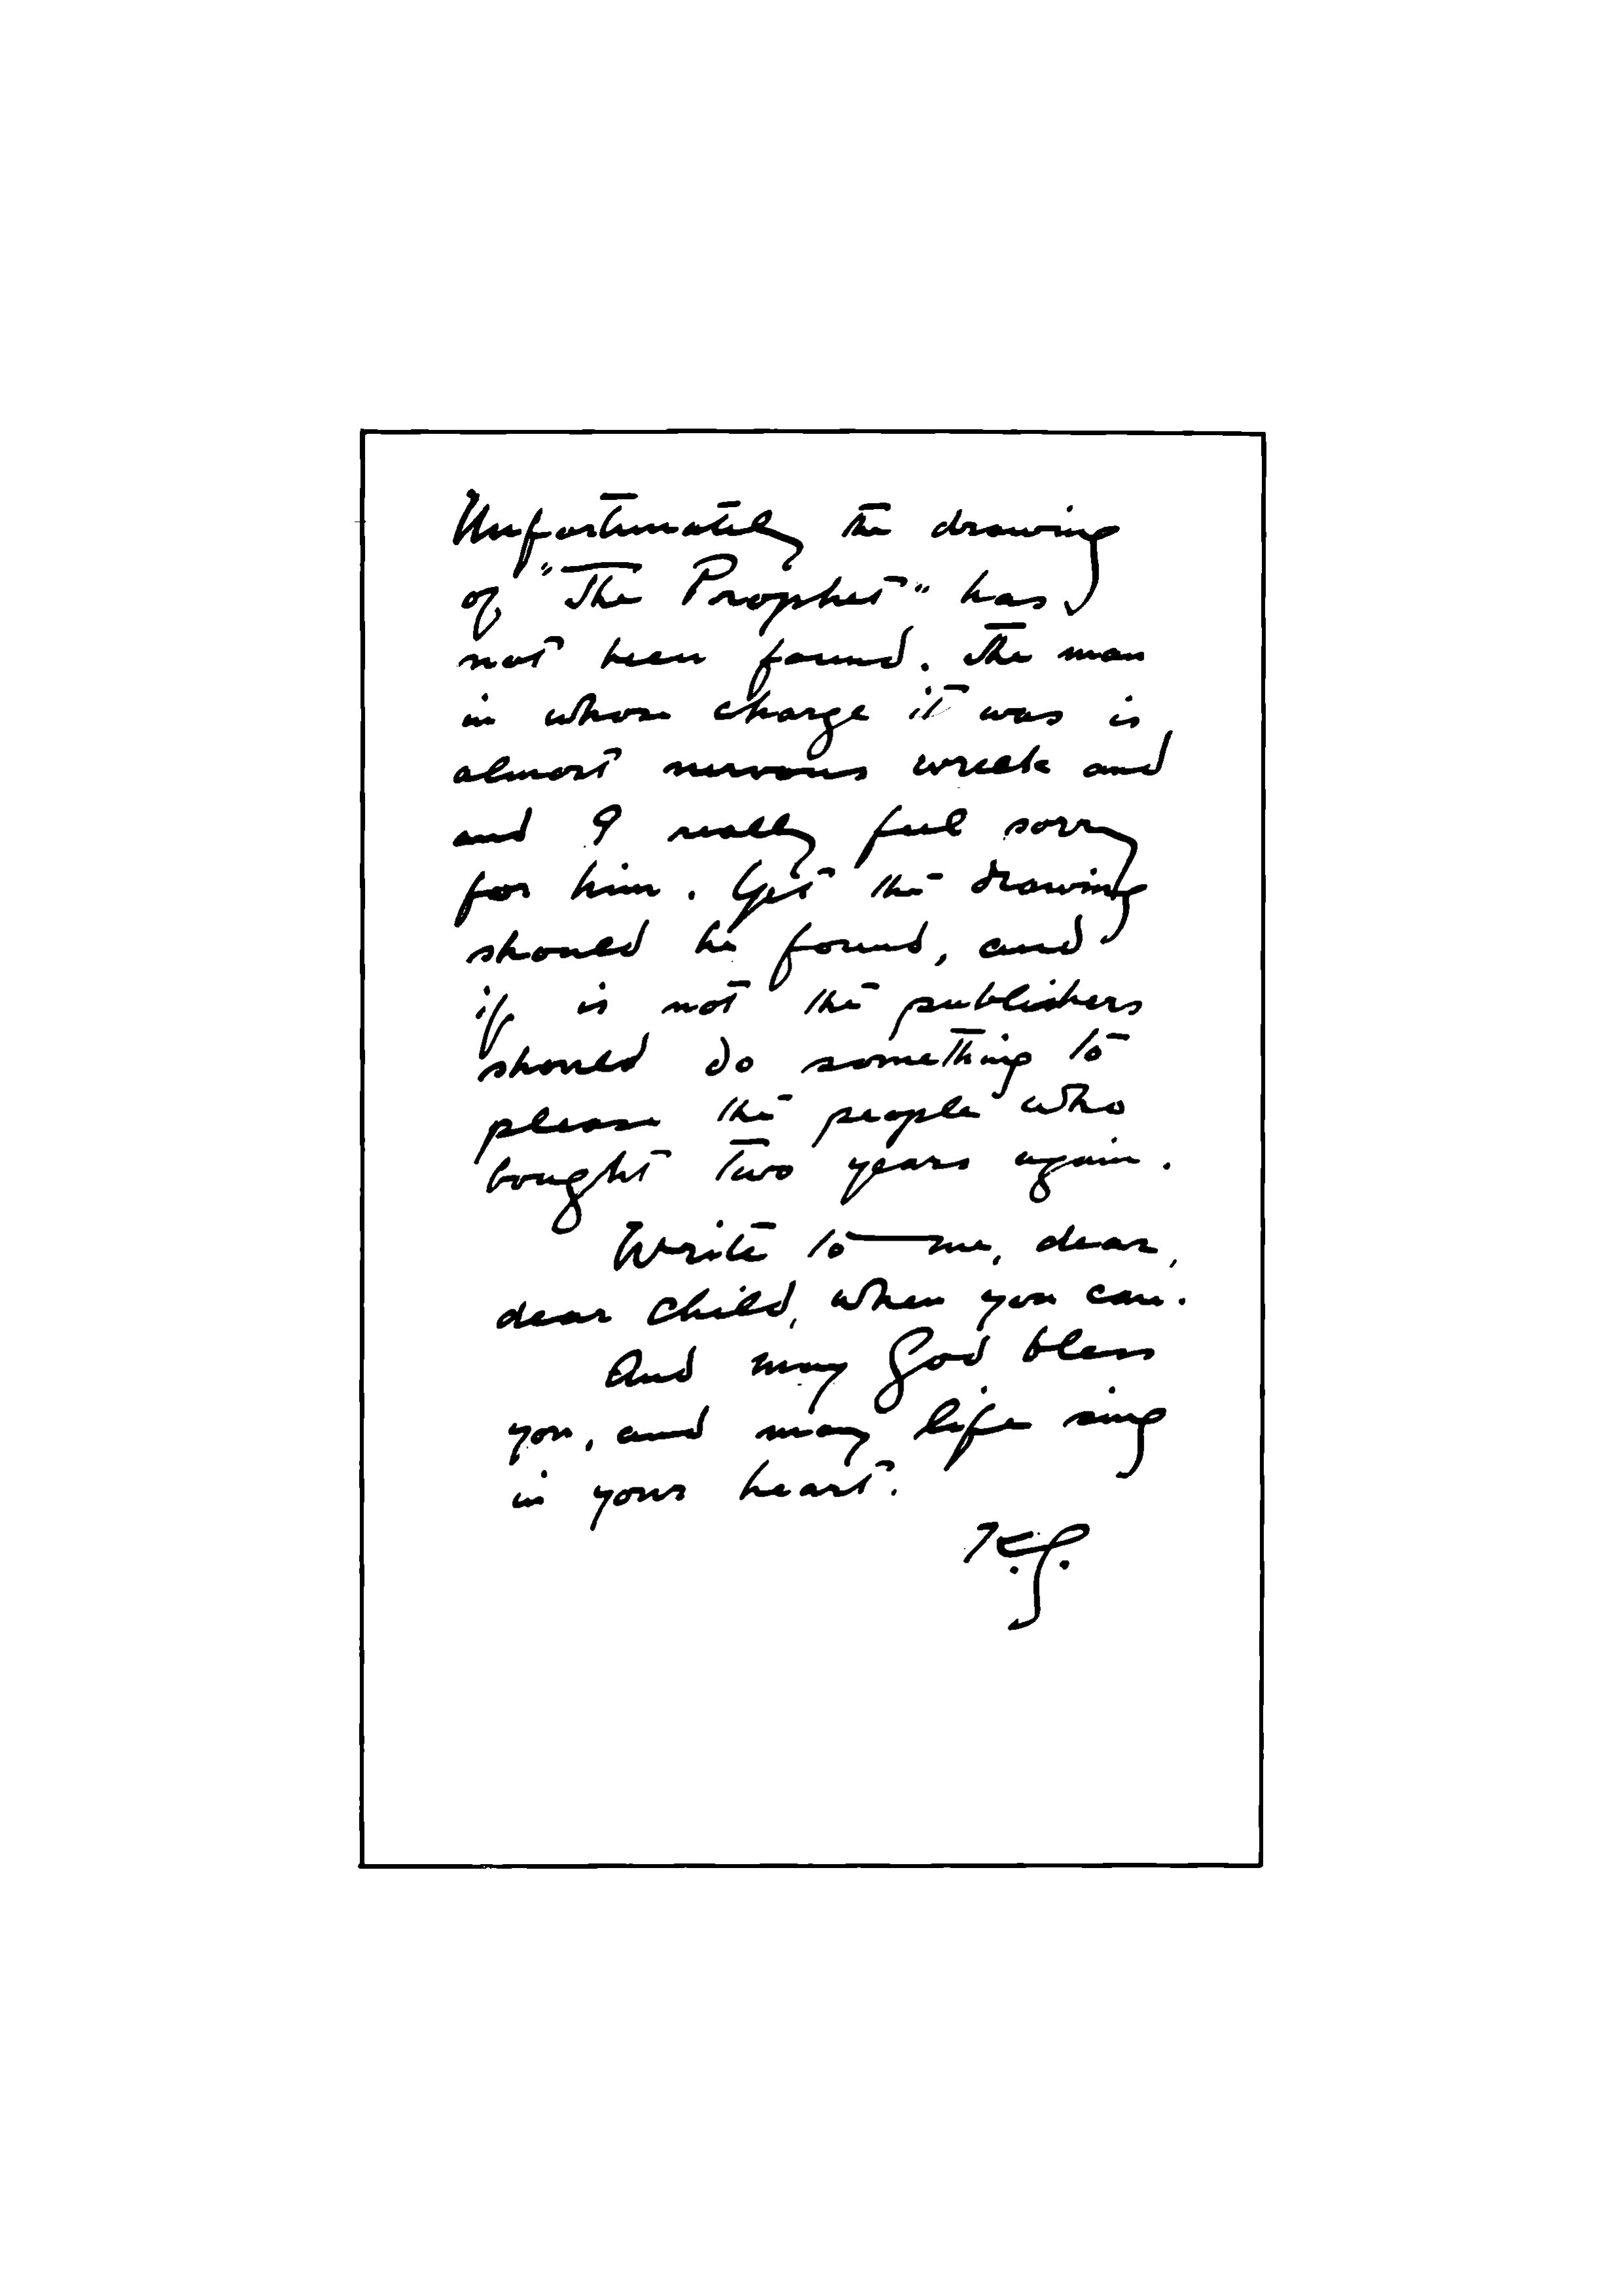 Unfortunately the drawing
of "The Prophet" has
not been found. The man
in whose charge it was is
almost nervous wreck and
and I really feel sorry
for him. Yet the drawing
should be found, and
if is not the publishers
should do something to
please the people who
bought two years again.
Write to me, dear,
dear child, when you can.
And may God bless
you, and may life sing
in your heart.
K.G.